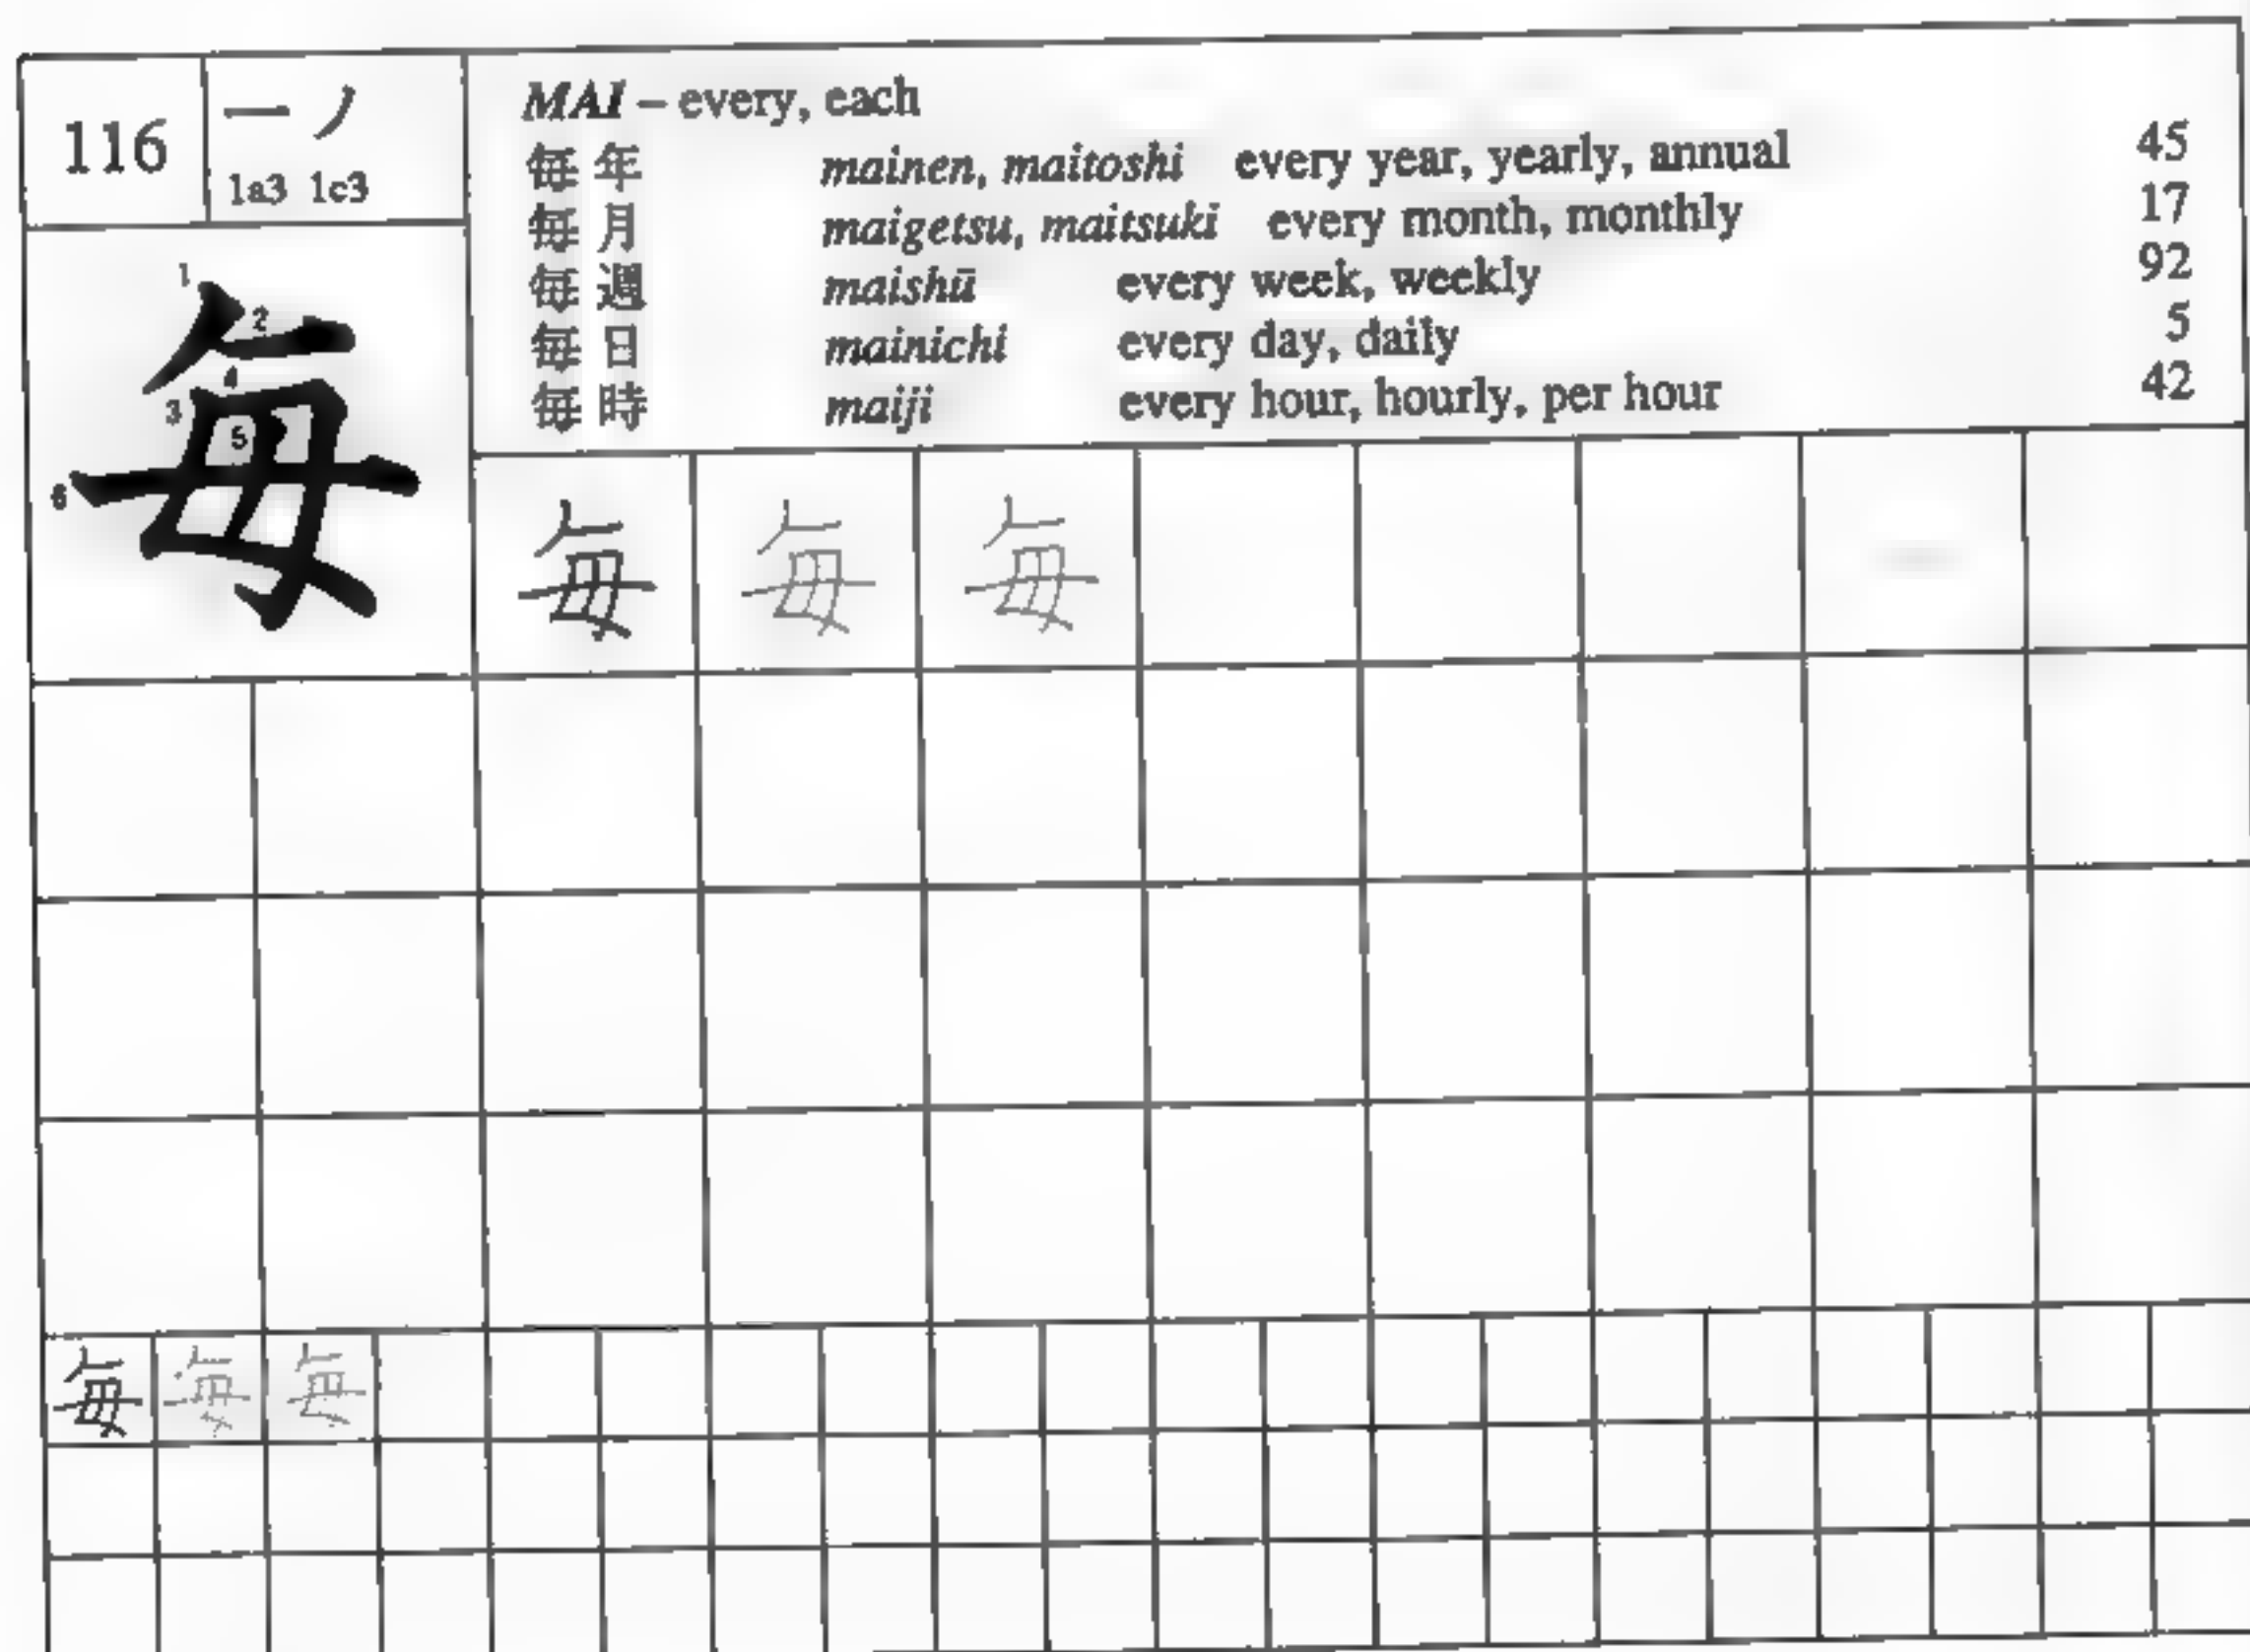 116
一 ノ
1a3 1c3
MAI – every, each
毎年 mainen, maitoshi every year, yearly, annual 45
毎月 maigetsu, maitsuki every month, monthly 17
毎週 maishū every week, weekly 92
毎日 mainichi every day, daily 5
毎時 maiji every hour, hourly, per hour 42
1
2
4
3
5
6
毎
毎 毎 毎
毎 毎 毎